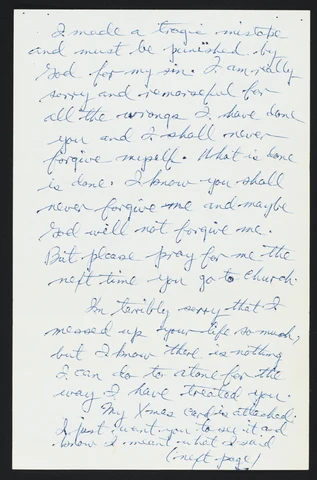 I made a tragic mistake
and must be punished by
God for my sin. I am really
sorry and remorseful for
all the wrongs I have done
you and I shall never
forgive myself. What is done
is done. I know you shall
never forgive me and maybe
God will not forgive me.
But please pray for me the
next time you go to church.
Im terribly sorry that I
messed up your life so much,
but I know there is nothing
I can do to atone for the
way I have treated you.
My Xmas card is attached.
I just want you to see it and
know I meant what I said
(next page)